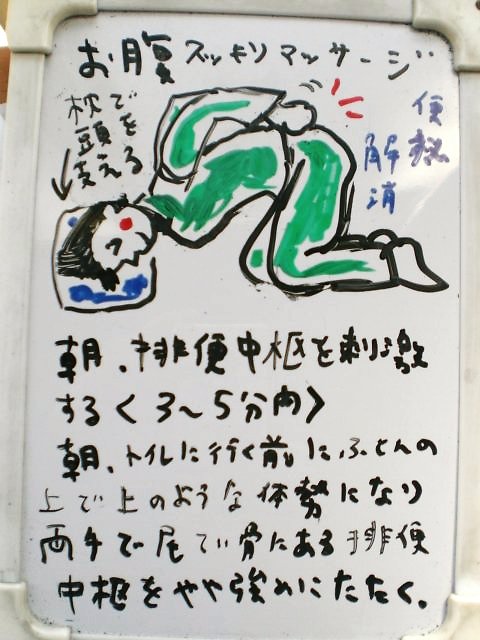 お腹スッキリマッサージ
便秘
解消
枕で
頭を
支える
朝、排便中枢を刺激
する〈3〜5分内〉
朝、トイレに行く前にふとんの
上で上のような体勢になり
両手で尾てい骨にある排便
中枢をやや強めにたたく。